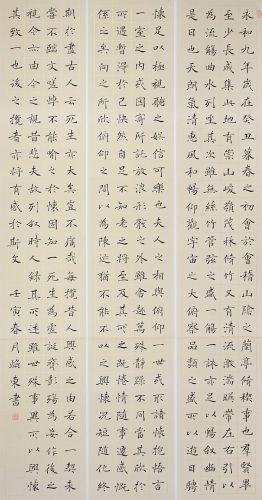 永和九年歲在癸丑暮春之初會於會稽山陰之蘭亭脩禊事也群賢畢
至少長咸集此地有崇山峻嶺茂林脩竹又有清流激湍暎帶左右引以
為流觴曲水列坐其次雖無絲竹管弦之盛一觴一詠亦足以暢敘幽情
是日也天朗氣清惠風和暢仰觀宇宙之大俯察品類之盛所以遊目騁
懷足以極視聽之娛信可樂也夫人之相與俯仰一世或取諸懷抱悟言
一室之內或因寄所託放浪形骸之外雖趣舍萬殊靜躁不同當其欣於
所遇暫得於己快然自足不知老之將至及其所之既惓情隨事遷感慨
係之矣向之所欣俯仰之間以為陳迹猶不能不以之興懷況脩短隨化終
期於盡古人云死生亦大矣豈不痛哉每攬昔人興感之由若合一契未
嘗不臨文嗟悼不能喻之於懷固知一死生為虛誕齊彭殤為妄作後之
視今亦由今之視昔悲夫故列敘時人錄其所述雖世殊事異所以興懷
其致一也後之攬者亦將有感於斯文 壬寅春月 東書